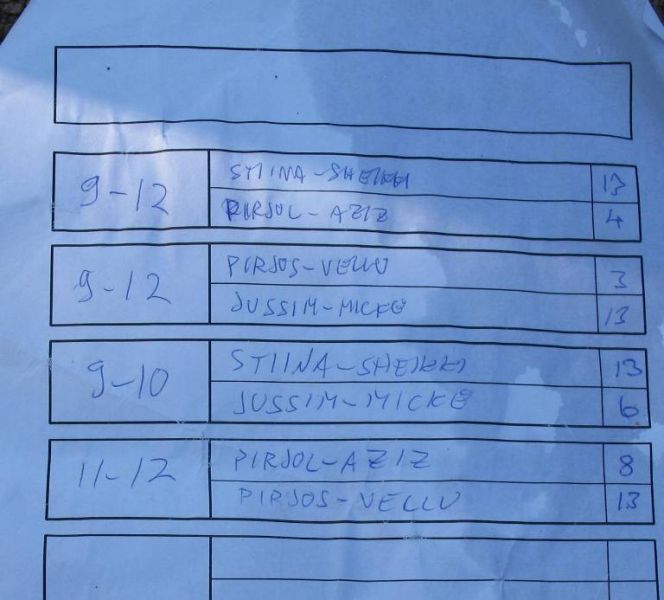 9-12
STIINA-SHEIKKI 13
PIRJOL-AZIZ 4
9-12
PIRJOS-VELLU 3
JUSSIM-MICKE 13
9-10
STIINA-SHEIKKI 13
JUSSIM-MICKE 6
11-12
PIRJOL-AZIZ 8
PIRJOS-VELLU 13